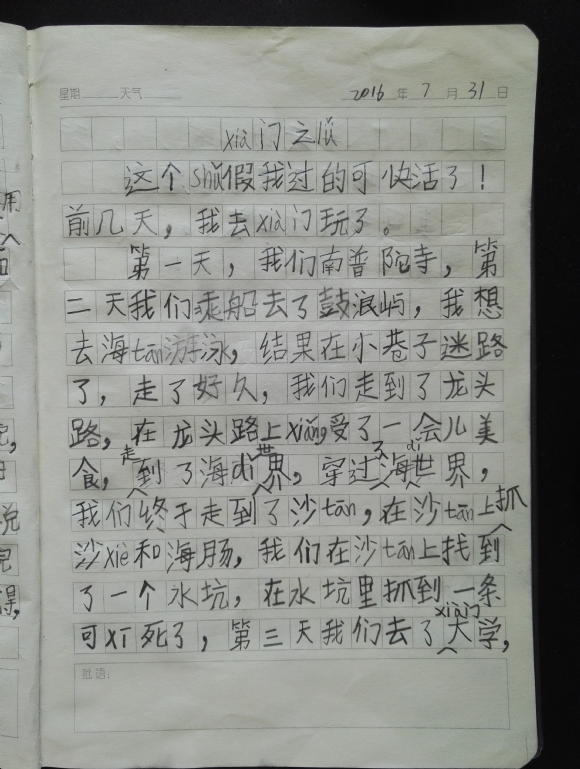 星期 天气 2016 年 7 月 31 日
xià门之lǚ
这个shǔ假我过的可快活了！
前几天，我去xià门玩了。
第一天，我们南普陀寺，第
二天我们乘船去了鼓浪屿，我想
去海tān游泳，结果在小巷子迷路
了，走了好久，我们走到了龙头
路，在龙头路上xiǎng受了一会儿美
食，走到了海dǐ世界，穿过了海dǐ世界，
我们终于走到了沙tān，在沙tān上抓
沙xiè和海肠，我们在沙tān上找到
了一个水坑，在水坑里抓到一条
可xī死了，第三天我们去了xià门大学，
批语：